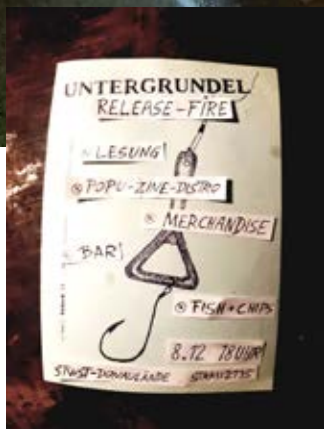 UNTERGRUNDEL
RELEASE-FIRE
LESUNG
POPU-ZINE-DISTRO
MERCHANDISE
BAR
FISH+CHIPS
8.12 18UHR
STWST-DONAULÄNDE